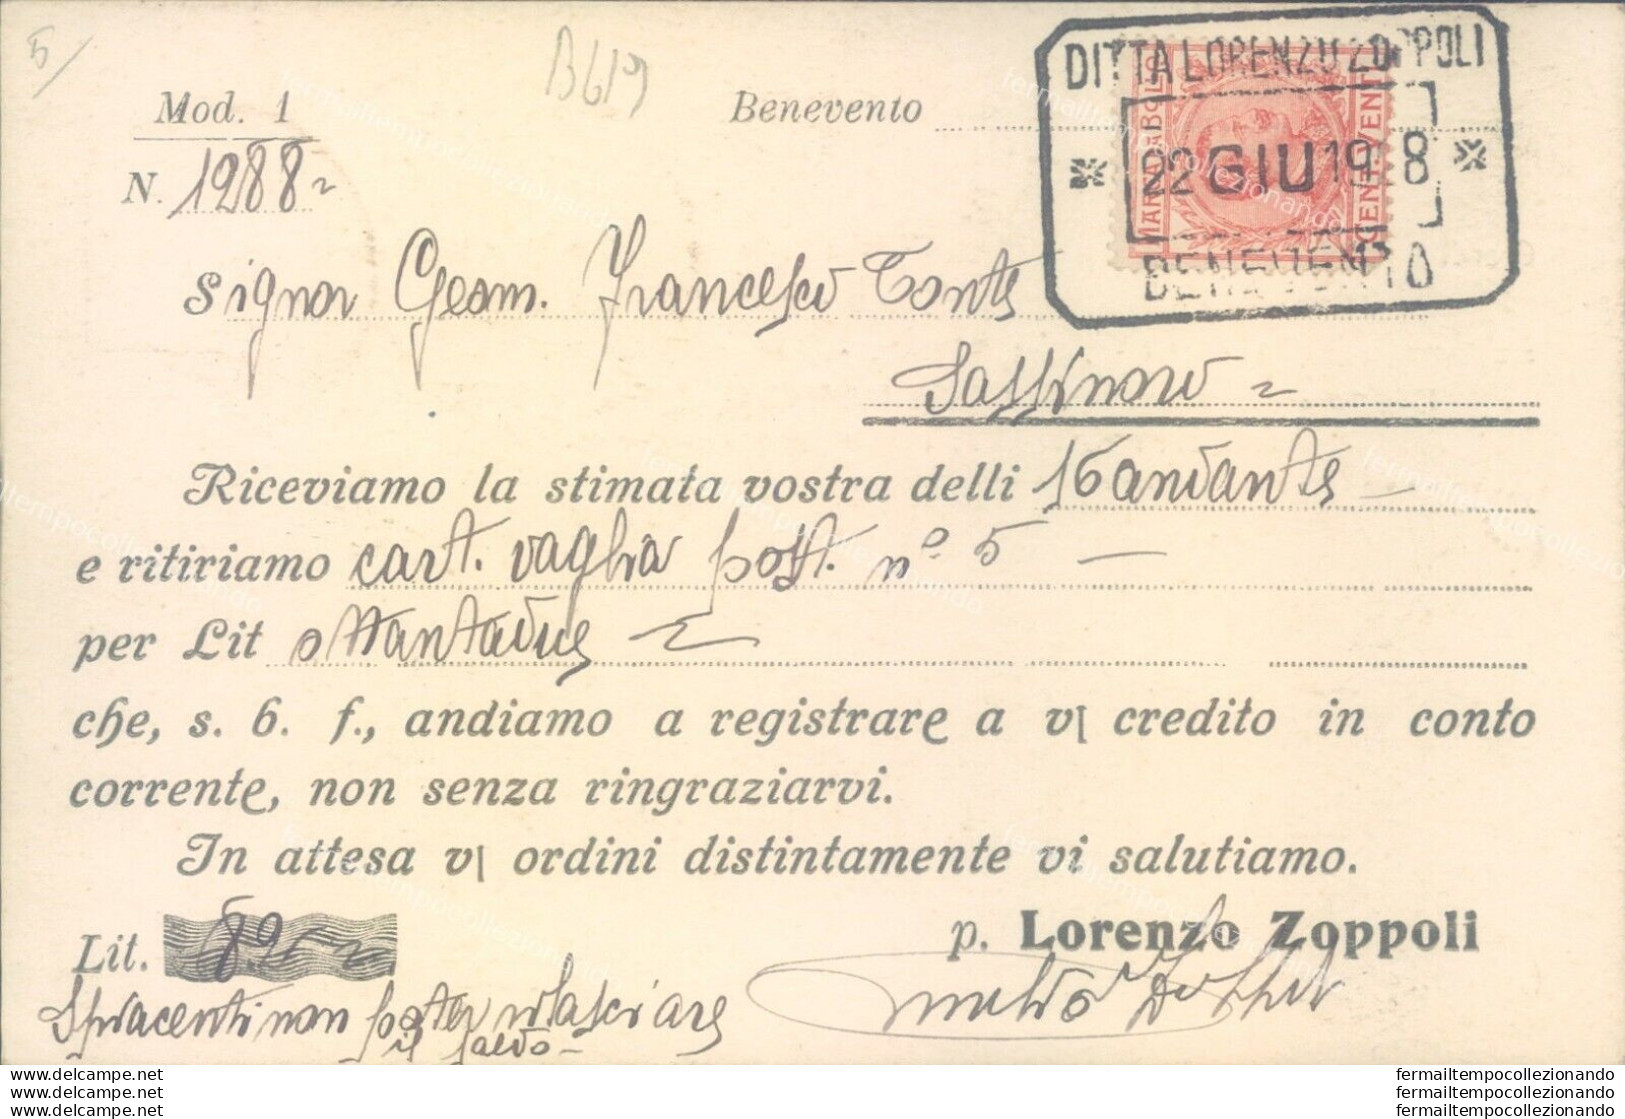 5/
B619
Mod. 1
Benevento
DITTA LORENZO ZOPPOLI
MARCA DA BOLLO
CENT. VENTI
22 GIU 1928
BENEVENTO
N. 1288
Signor Geom. Francesco Conte
Sassinoro
Riceviamo la stimata vostra delli 16 andante
e ritiriamo cart. vaglia post. nº 5
per Lit ottantadue
che, s. b. f., andiamo a registrare a v/ credito in conto
corrente, non senza ringraziarvi.
In attesa v/ ordini distintamente vi salutiamo.
Lit. 82
p. Lorenzo Zoppoli
Spiacenti non poter rilasciare
il saldo
www.delcampe.net
www.delcampe.net
www.delcampe.net
fermailtempocollezionando
fermailtempocollezionando
fermailtempocollezionando